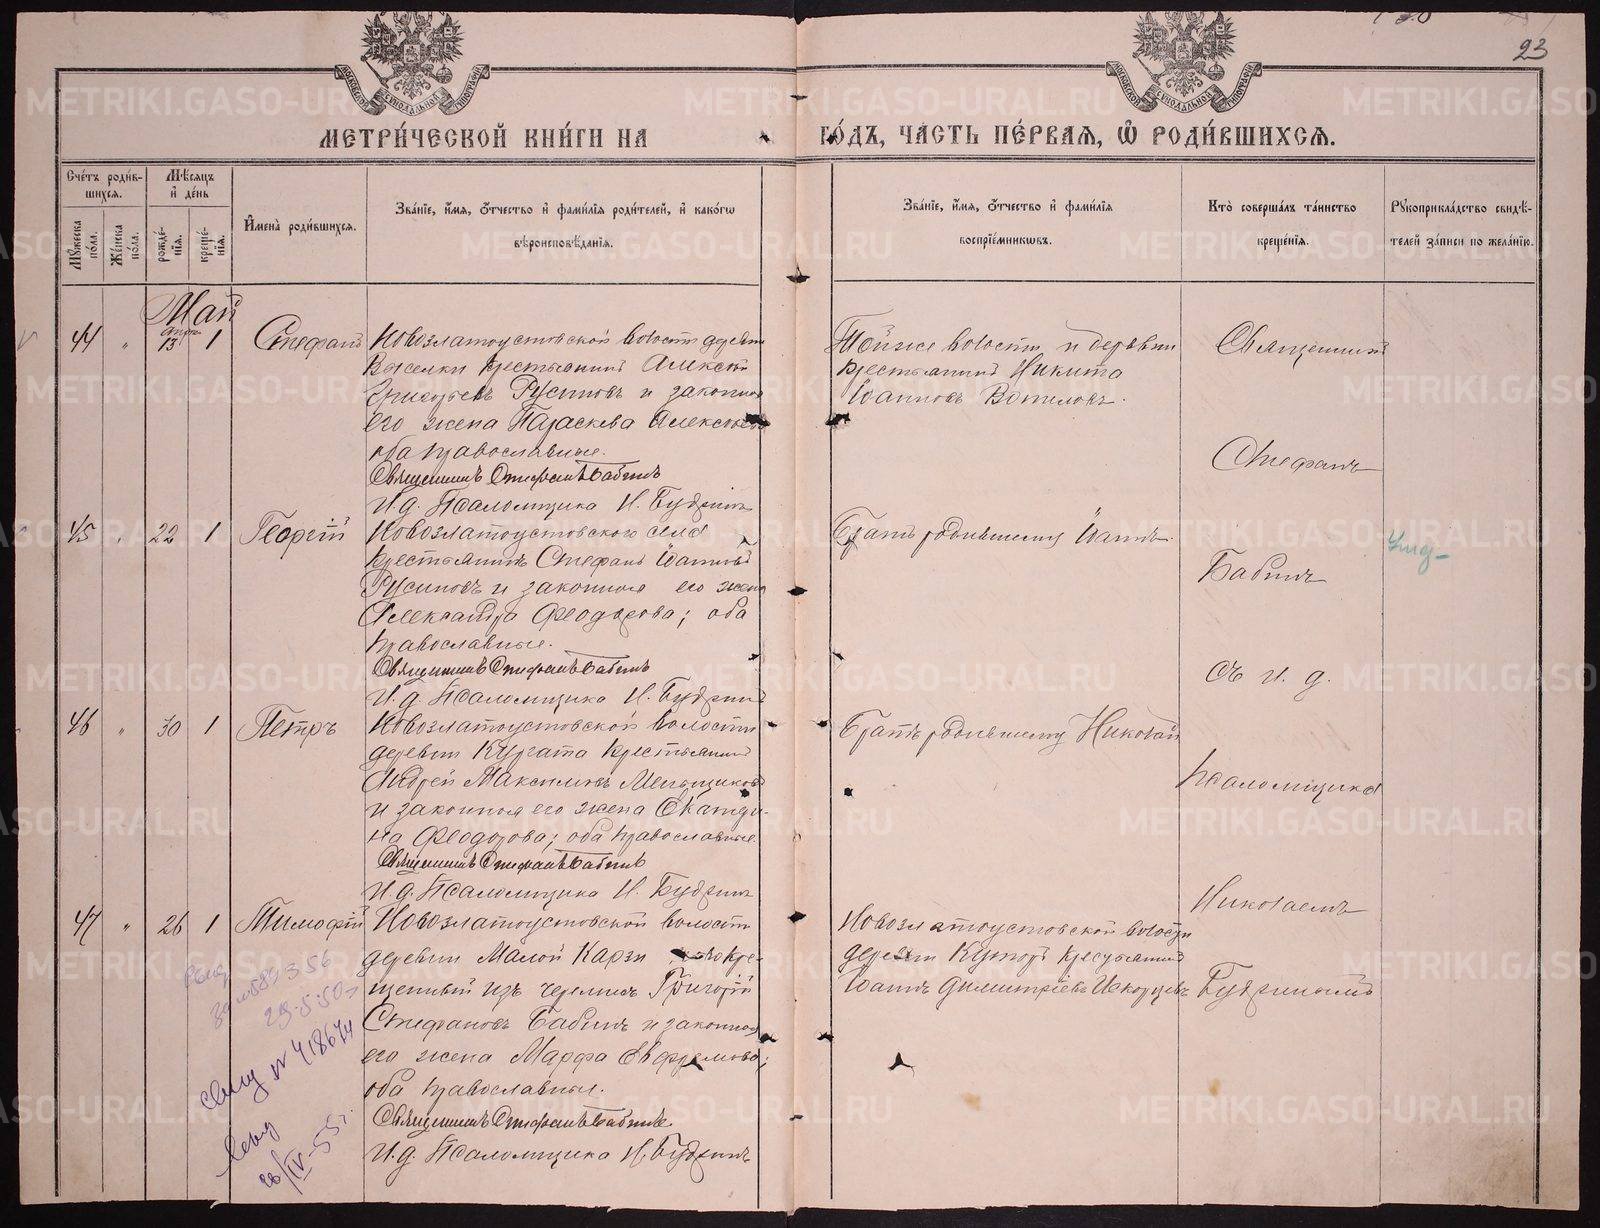 23
МЕТРИ́ЧЕСКОЙ КНИ́ГИ НА
ГО́ДЪ, ЧА́СТЬ ПЕ́РВАЯ, Ѡ҆ РОДИ́ВШИХСЯ.
Счétъ роди́в-
шихся.
Мѣ́сяцъ
и҆ де́нь
Мꙋ́жеска
по́ла.
Же́нска
по́ла.
рожде́-
нїѧ.
креще́-
нїѧ.
И҆мена̀ роди́вшихся.
Зва́нїе, и҆́мя, о҆́тчество и҆ фами́лїя роди́телей, и҆ како́гѡ
вѣроисповѣ́данїя.
Зва́нїе, и҆́мя, о҆́тчество и҆ фами́лїя
воспрїе́мникѡвъ.
Кто̀ соверша́лъ та́инство
креще́нїя.
Рꙋкоприкла́дство свидѣ́-
телей за́писи по жела́нїю.
Май
44 " 13 1 Стефанъ
Новозлатоустовской волости деревни
Выселки крестьянинъ Алексѣй
Григорьевъ Русиновъ и законная
его жена Параскева Алексѣева
оба православные.
Священникъ Стефанъ Бабинъ
И.д. Псаломщика Н. Будринъ
Тойже волости и деревни
крестьянинъ Никита
Іоанновъ
45 " 22 1 Георгій
Новозлатоустовского села
крестьянинъ Стефанъ Іоанновъ
Русиновъ и законная его жена
Александра Феодорова; оба
православные.
Священникъ Стефанъ Бабинъ
И.д. Псаломщика Н. Будринъ
Братъ родившемуся Іоаннъ.
46 " 30 1 Петръ
Новозлатоустовской волости
деревни Кургата крестьянинъ
Андрей Максимовъ Меньщиковъ
и законная его жена Екатери-
на Феодорова; оба православные.
Священникъ Стефанъ Бабинъ
И.д. Псаломщика Н. Будринъ
Братъ родившемуся Николай
47 " 26 1 Тимофій
Новозлатоустовской волости
деревни Малой Карзи новокре-
щенный изъ черемисъ Григорій
Стефановъ Бабинъ и законная
его жена Марфа Евфремова;
оба православные.
Священникъ Стефанъ Бабинъ
И.д. Псаломщика Н. Будринъ
Новозлатоустовской волости
деревни крестьянинъ
Іоаннъ Димитріевъ
Священникъ
Стефанъ
Бабинъ
съ и. д.
псаломщика
Николаемъ
Будринымъ
29.5.50г
свид № 418674
26/IV-55г.
METRIKI.GASO-URAL.RU